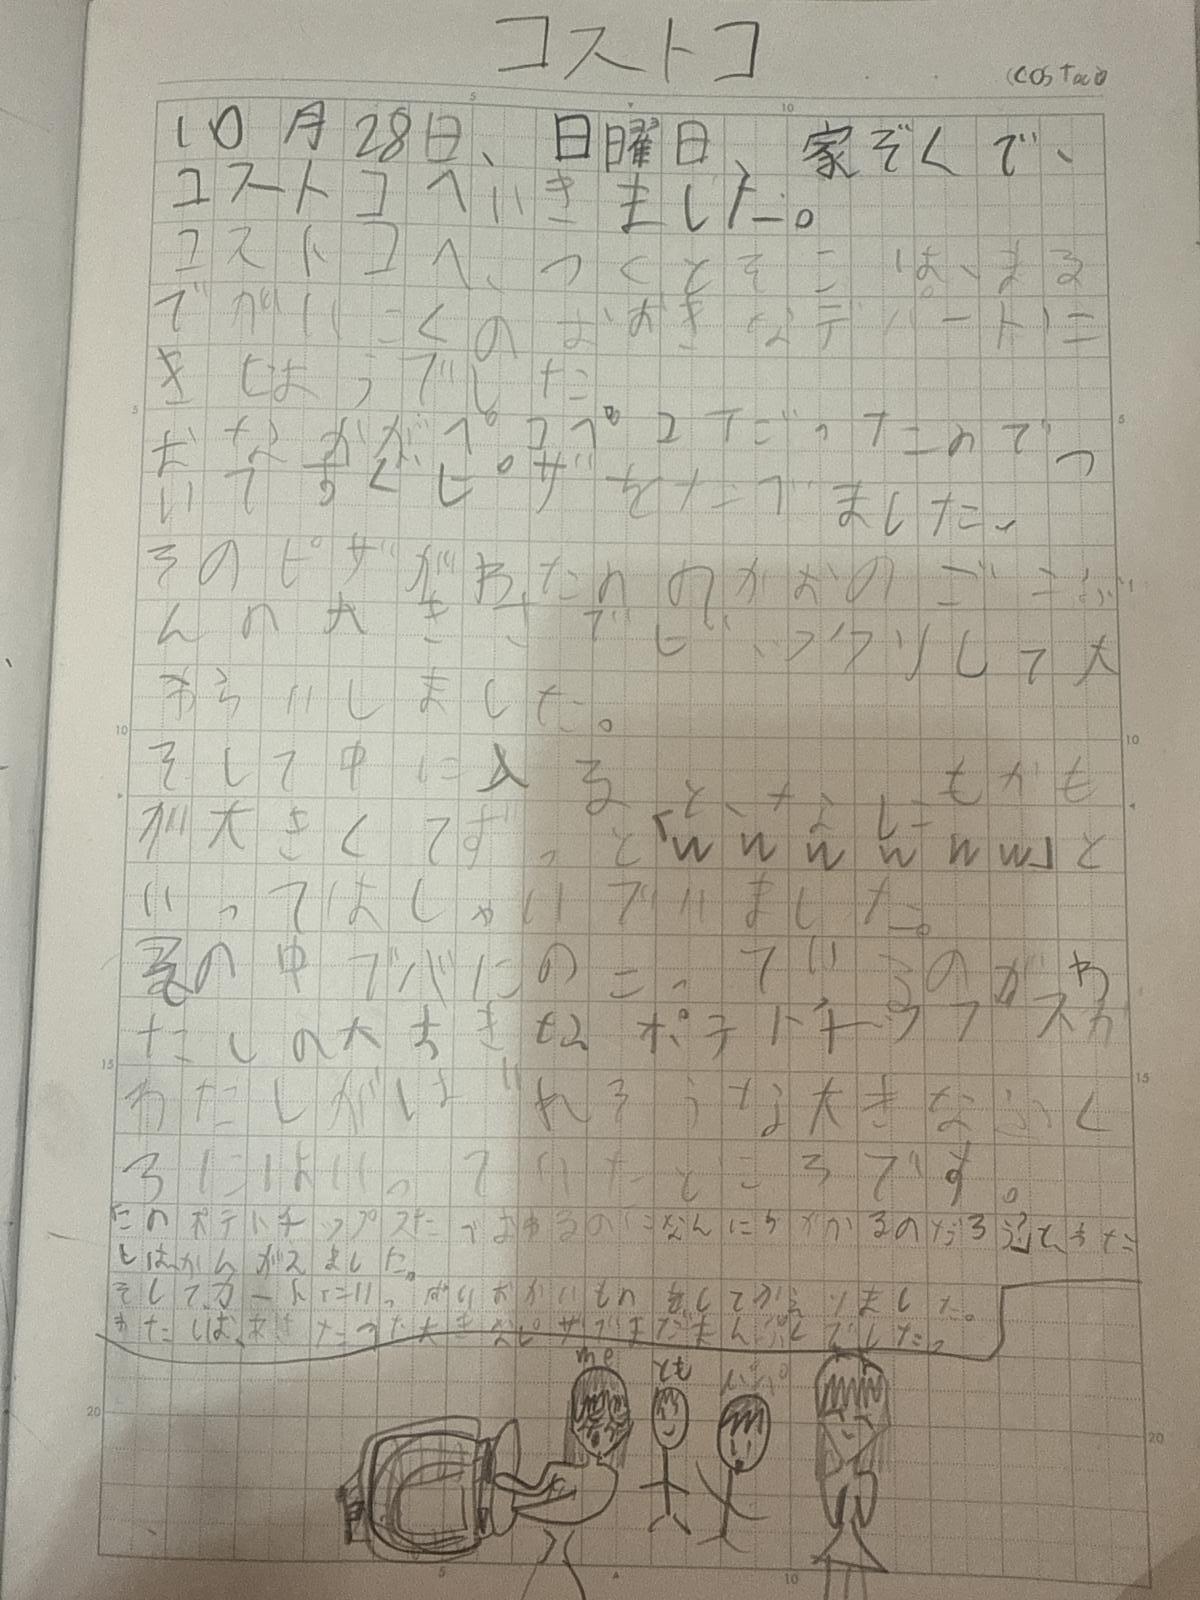 コストコ
(COSTCO)
10月28日、日曜日、家ぞくで、
コストコへいきました。
コストコへ、つくとそこは、まる
でがいこくのおおきなデパートに
きたようでした。
おなかがペコペコだったのでつ
いてすぐピザをたべました。
そのピザがわたしのかおのごこぶ
んの大きさでビックリして大
わらいしました。
そして中に入ると、なにもかも
が大きくてずっと「wwwwww」と
いってはしゃいでいました。
その中でバにのこっているのがわ
たしの大すきなポテトチップスが
わたしがはいれそうな大きなふく
ろにはいっていたところです。
「このポテトチップスたべおわるのになんにちかかるのだろう」とわた
しはかんがえました。
そしてカートにいっぱいおかいものをしてかえりました。
わたしは、あさたべた大きなピザでまだまんぷくでした。
me
とも
パパ